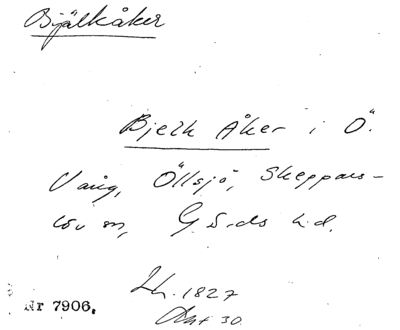 Bjälkåker
Bjelk Åker i Ö.
Vång, Öllsjö, Skeppars-
löv sn, G-ds hd.
Lh. 1827
Akt 30
Nr 7906.